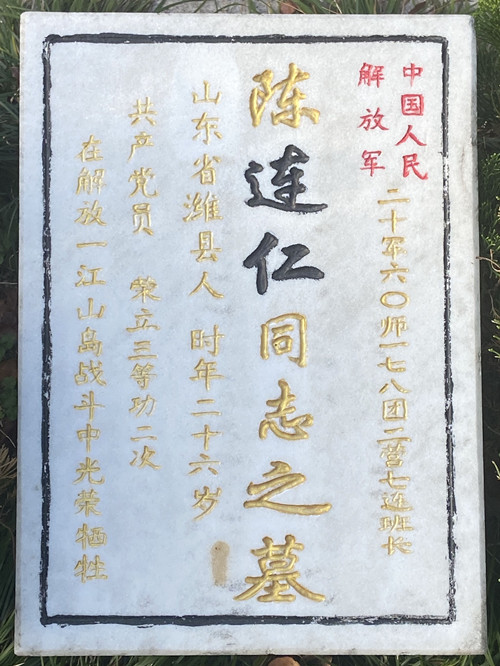 中国人民
解放军
二十军六〇师一七八团二营七连班长
陈连仁同志之墓
山东省潍县人 时年二十六岁
共产党员 荣立三等功二次
在解放一江山岛战斗中光荣牺牲